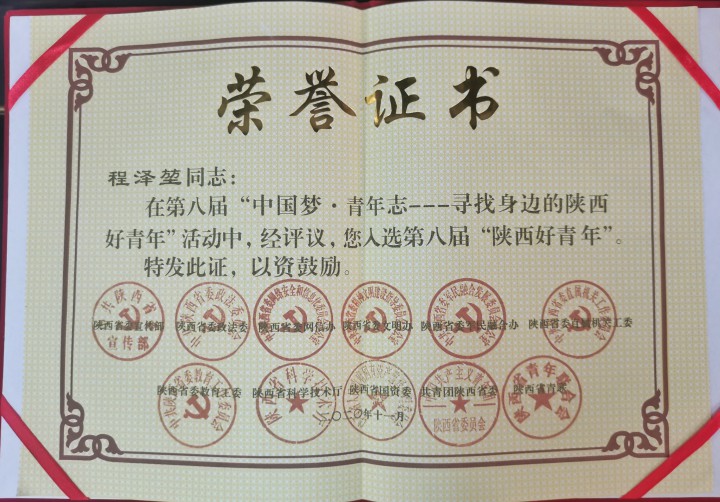 荣誉证书
程泽堃同志：
在第八届“中国梦·青年志---寻找身边的陕西
好青年”活动中，经评议，您入选第八届“陕西好青年”。
特发此证，以资鼓励。
陕西省委宣传部 陕西省委政法委 陕西省委网信办 陕西省委文明办 陕西省委军民融合办 陕西省委直属机关工委
陕西省委教育工委 陕西省科学技术厅 陕西省国资委 共青团陕西省委 陕西省青联
二〇二〇年十一月
宣传部
陕西省委员会